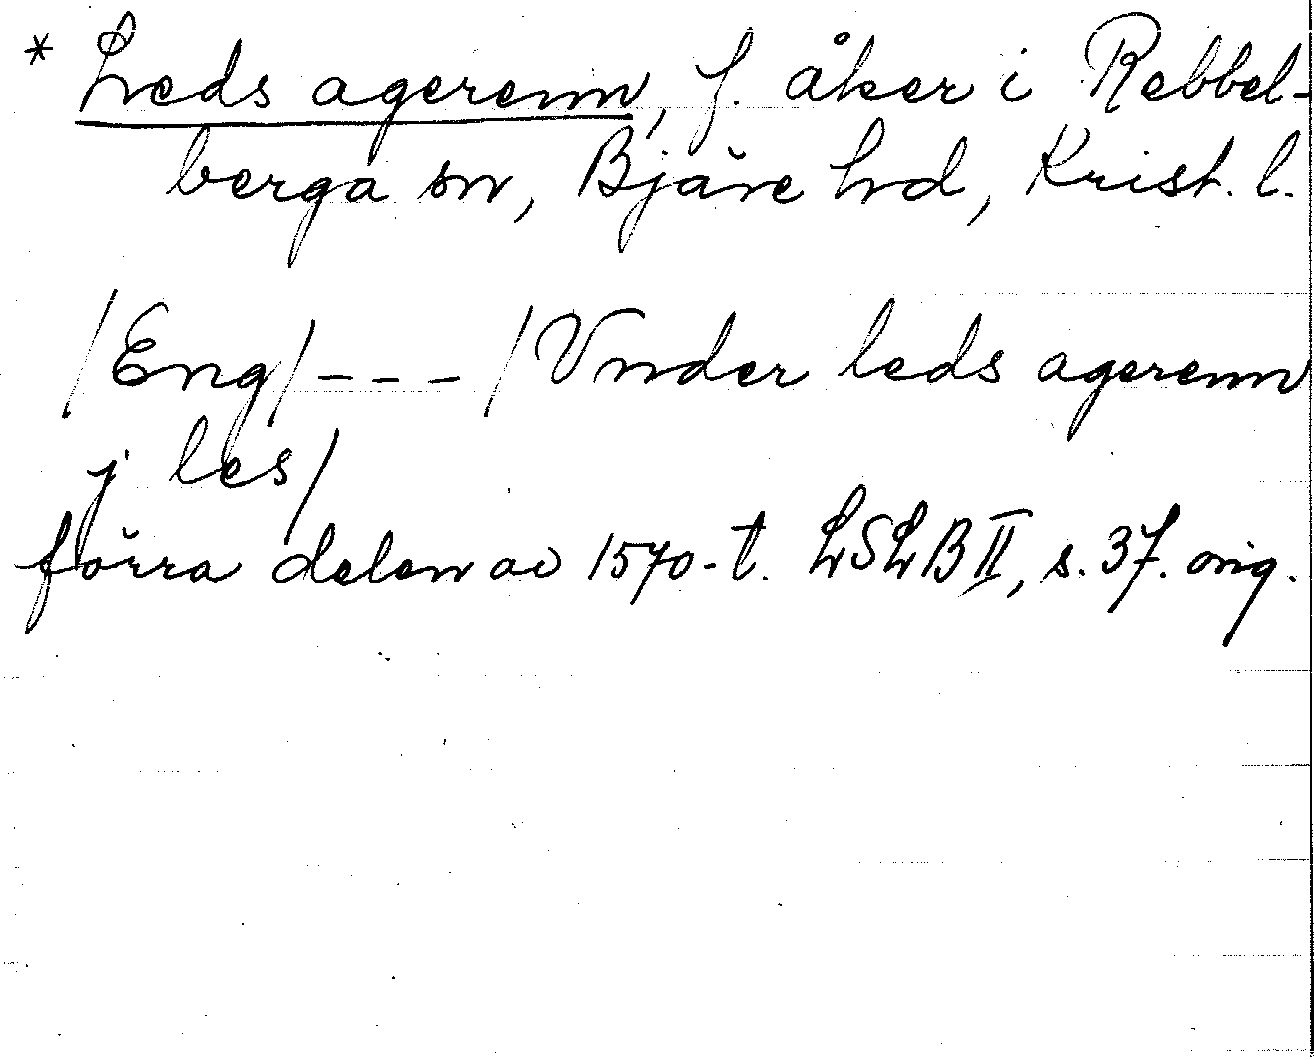 * Leds agerenn, f. åker i Rebbel-
berga sn, Bjäre hd, Krist. l.
/Eng/ - - - /Vnder leds agerenn
j les/
förra delen av 1570-t. LSLB II, s. 37. orig.